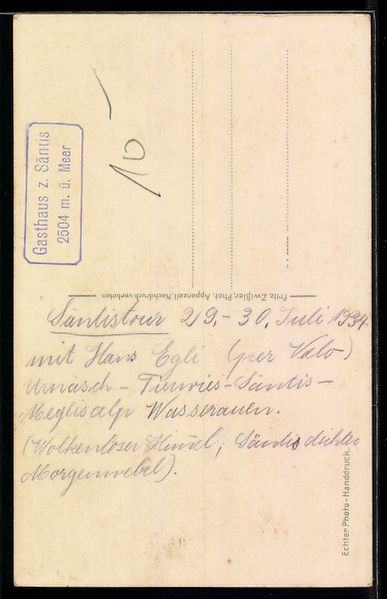 Gasthaus z. Säntis
2504 m. ü. Meer
10
Fritz Zwißler, Phot. Appenzell. Nachdruck verboten
Säntistour 29.-30. Juli 1934
mit Hans Egli (per Velo)
Urnäsch - Tierwies - Säntis -
Meglisalp Wasserauen.
(Wolkenloser Himmel, Säntis dichter
Morgennebel).
Echter Photo-Handdruck.